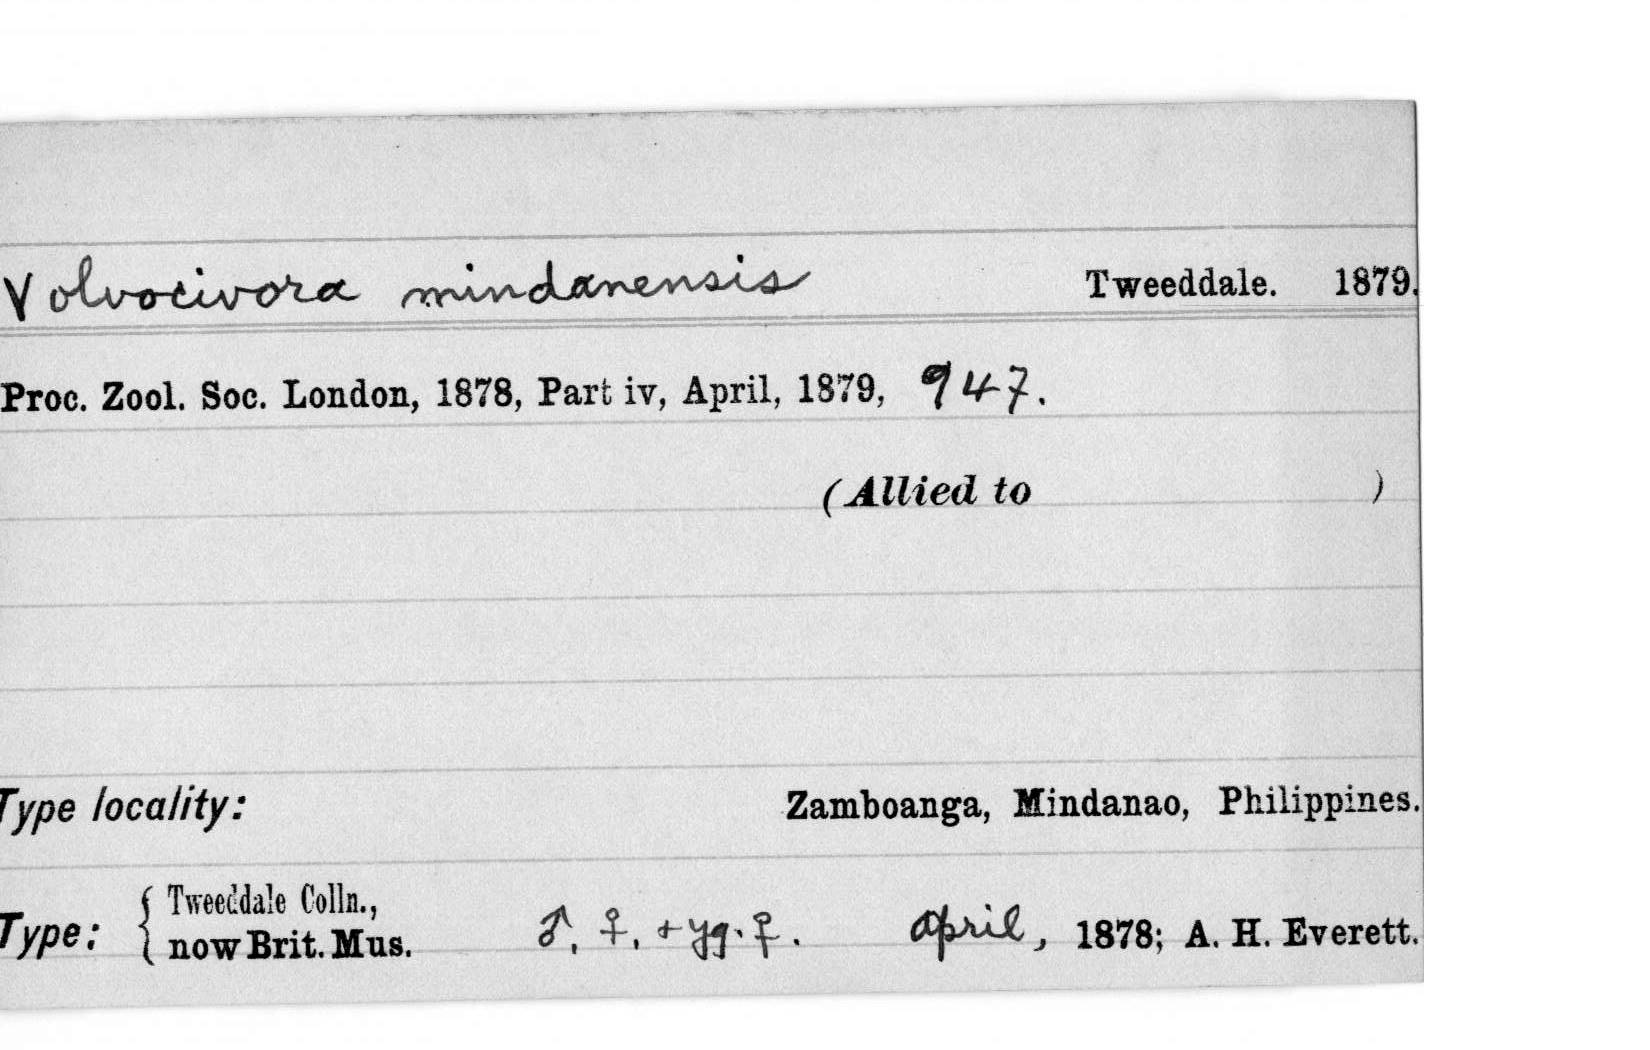 Volvocivora mindanensis Tweeddale. 1879.
Proc. Zool. Soc. London, 1878, Part iv, April, 1879, 947.
(Allied to )
Type locality: Zamboanga, Mindanao, Philippines.
Type: { Tweeddale Colln.,
now Brit. Mus. ♂, ♀, + yg. ♀. April, 1878; A. H. Everett.